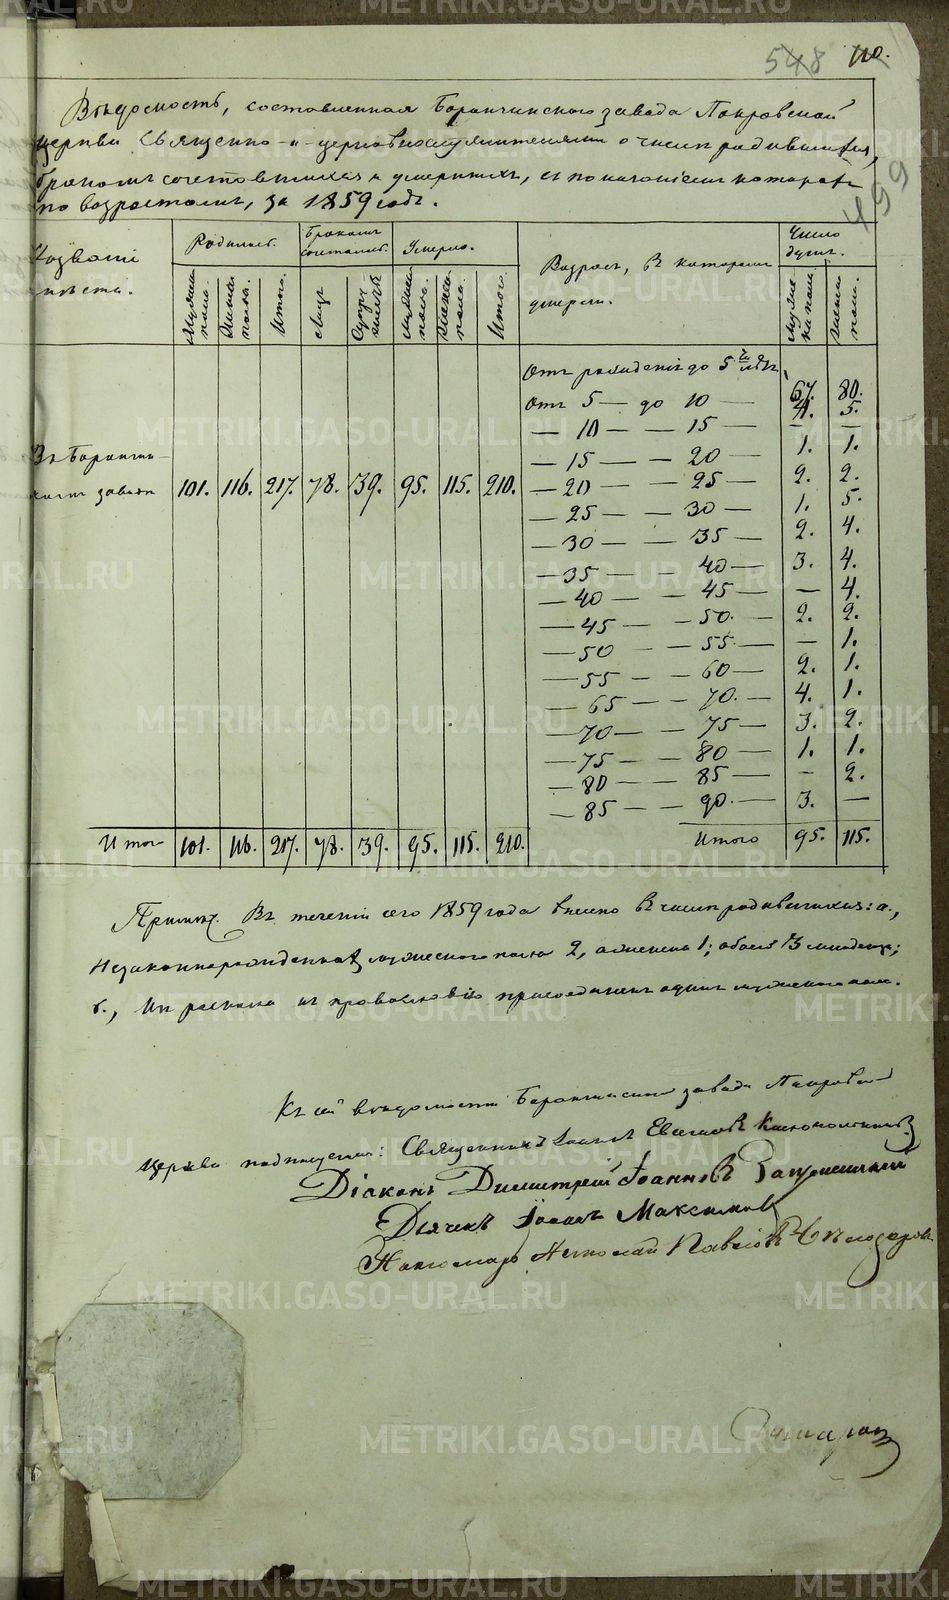 548 110.
499
Вѣдомость, составленная Баранчинскаго завода Покровской
церкви Священно-и-церковнослужителями о числѣ родившихся,
бракомъ сочетавшихся и умершихъ, съ показаніемъ которые
по возрастамъ, за 1859 годъ.
Названіе мѣста.
Родилось.
Бракомъ сочеталось.
Умерло.
Возрастъ, въ которомъ умерли.
Число душъ.
Мужеска пола. Женска пола. Итого. Лицъ Супружествъ Мужеска пола. Женска пола. Итого. Мужеска пола. Женска пола.
Отъ рожденія до 5ти лѣтъ, 67. 80.
Отъ 5 — до 10 — 4. 5.
— 10 — — 15 — — —
— 15 — — 20 — 1. 1.
Въ Баранчинскомъ заводѣ 101. 116. 217. 78. 39. 95. 115. 210.
— 20 — — 25 — 2. 2.
— 25 — — 30 — 1. 5.
— 30 — — 35 — 2. 4.
— 35 — — 40 — 3. 4.
— 40 — — 45 — — 4.
— 45 — — 50. — 2. 2.
— 50 — — 55. — — 1.
— 55 — — 60 — 2. 1.
— 65 — — 70. — 4. 1.
— 70 — — 75 — 3. 2.
— 75 — — 80 — 1. 1.
— 80 — — 85 — — 2.
— 85 — — 90. — 3. —
Итого 101. 116. 217. 78. 39. 95. 115. 210. Итого 95. 115.
Примѣч. Въ теченіи сего 1859 года внесено въ число родившихся: а.,
Незаконнорожденныхъ мужескаго пола 2, а женска 1; обоего 3 младенца;
б., Изъ раскола къ православію присоединенъ одинъ мужескаго пола.
Къ сей вѣдомости Баранчинскаго завода Покровской
церкви подписуемся: Священникъ Евгеніевъ
Діаконъ Димитрій Іоанновъ
Дьячекъ Іоаннъ Максимовъ
Пономарь Николай Павловъ
METRIKI.GASO-URAL.RU